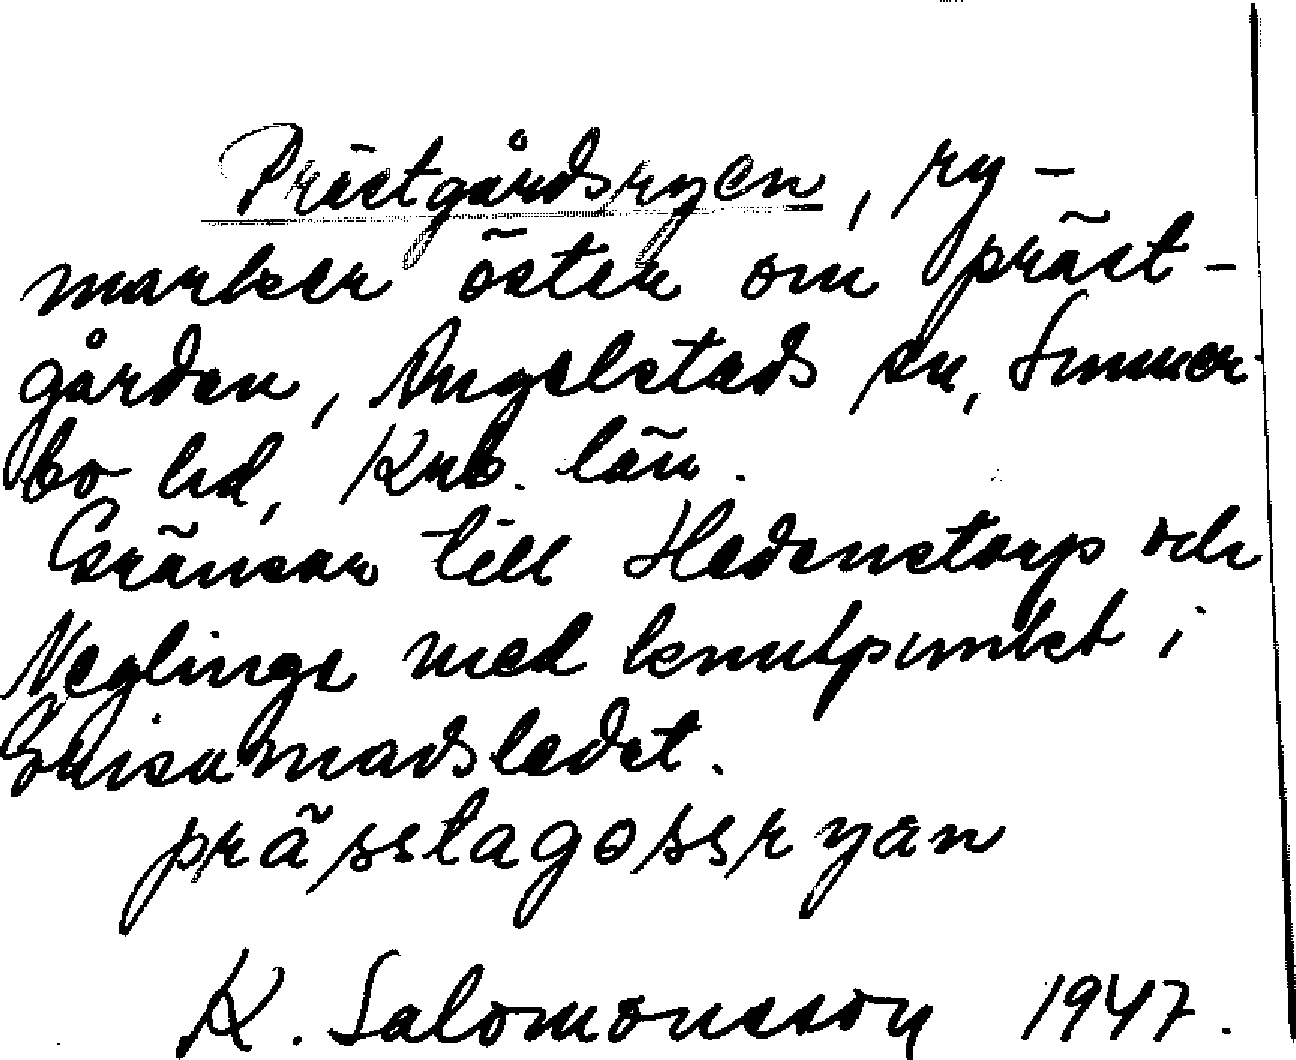 Prästgårdsryen, ry-
marker öster om präst-
gården, Angelstads sn, Sunner-
bo hd, Krb. län.
Gränsar till Hedenstorp och
Neglinge med knutpunkt i
madsledet.
prässtagossryan
K. Salomonsson 1947.